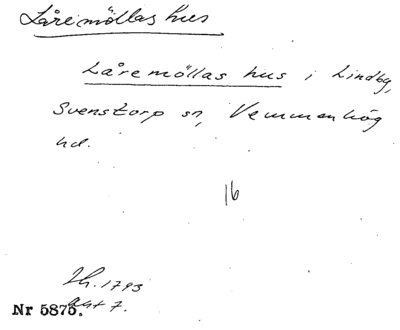 Låremöllas hus
Låremöllas hus i Lindby,
Svenstorp sn, Vemmenhög
hd.
16
Lh. 1793
Akt 7.
Nr 5875.